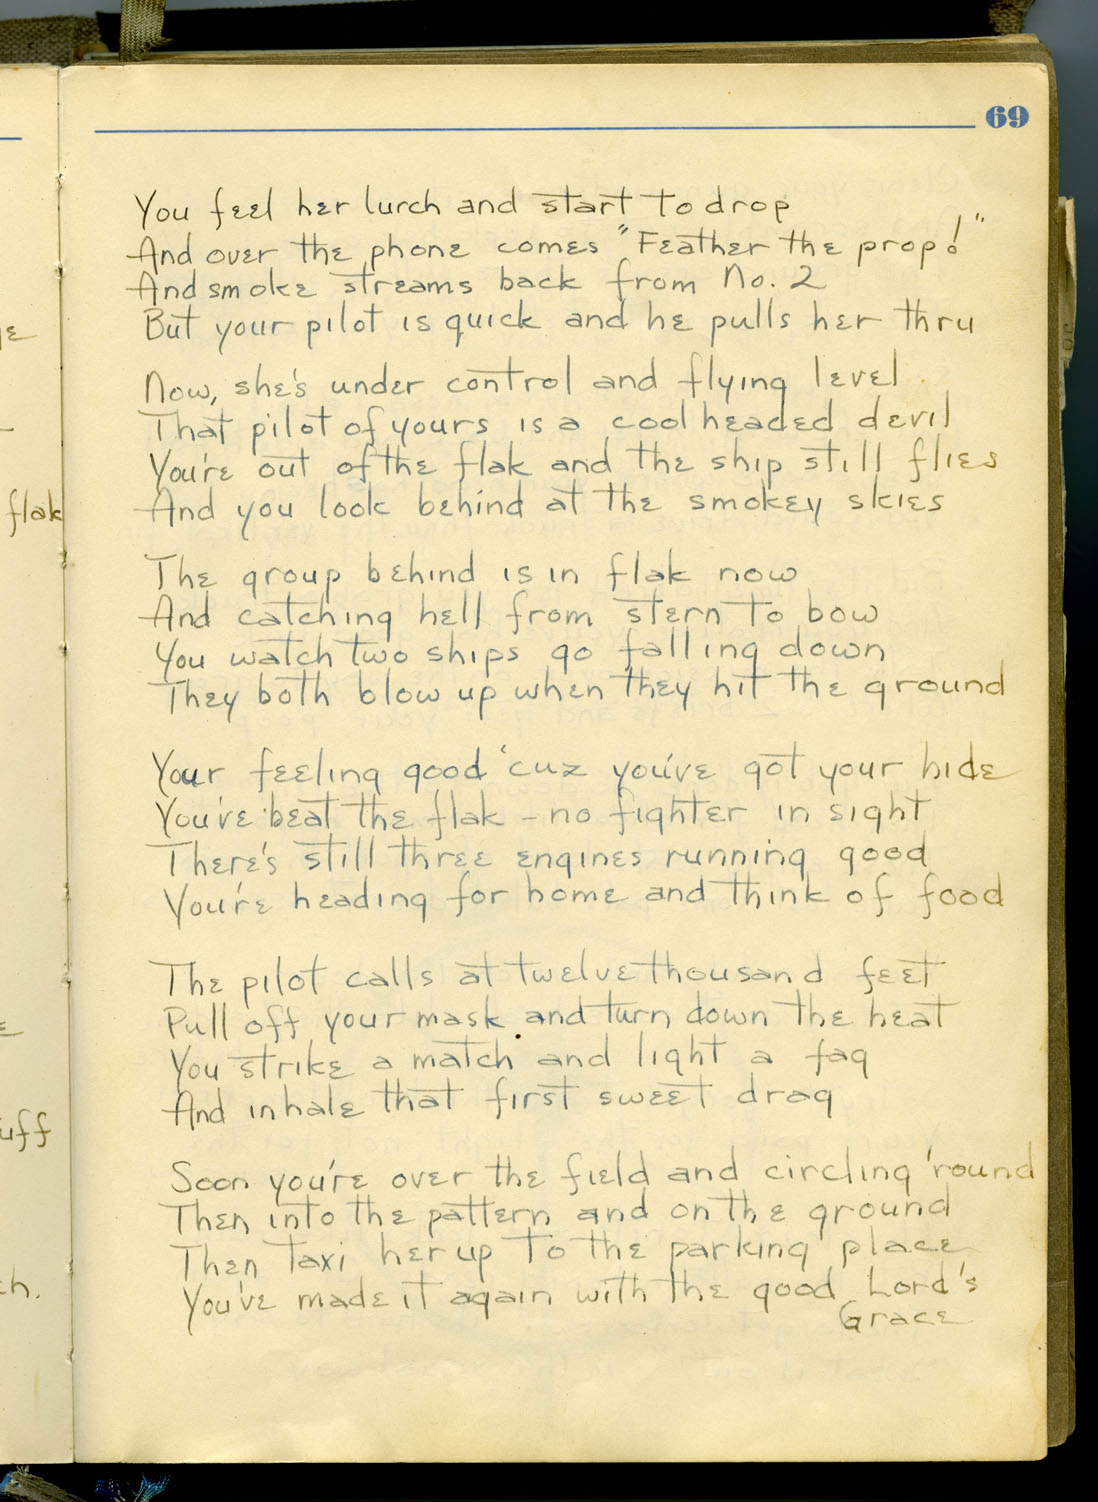 69
You feel her lurch and start to drop
And over the phone comes "Feather the prop!"
And smoke streams back from No. 2
But your pilot is quick and he pulls her thru
Now, she's under control and flying level
That pilot of yours is a cool headed devil
You're out of the flak and the ship still flies
And you look behind at the smokey skies
The group behind is in flak now
And catching hell from stern to bow
You watch two ships go falling down
They both blow up when they hit the ground
Your feeling good 'cuz you've got your hide
You've beat the flak - no fighter in sight
There's still three engines running good
You're heading for home and think of food
The pilot calls at twelve thousand feet
Pull off your mask and turn down the heat
You strike a match and light a fag
And inhale that first sweet drag
Soon you're over the field and circling 'round
Then into the pattern and on the ground
Then taxi her up to the parking place
You've made it again with the good Lord's
Grace
flak
uff
ch.